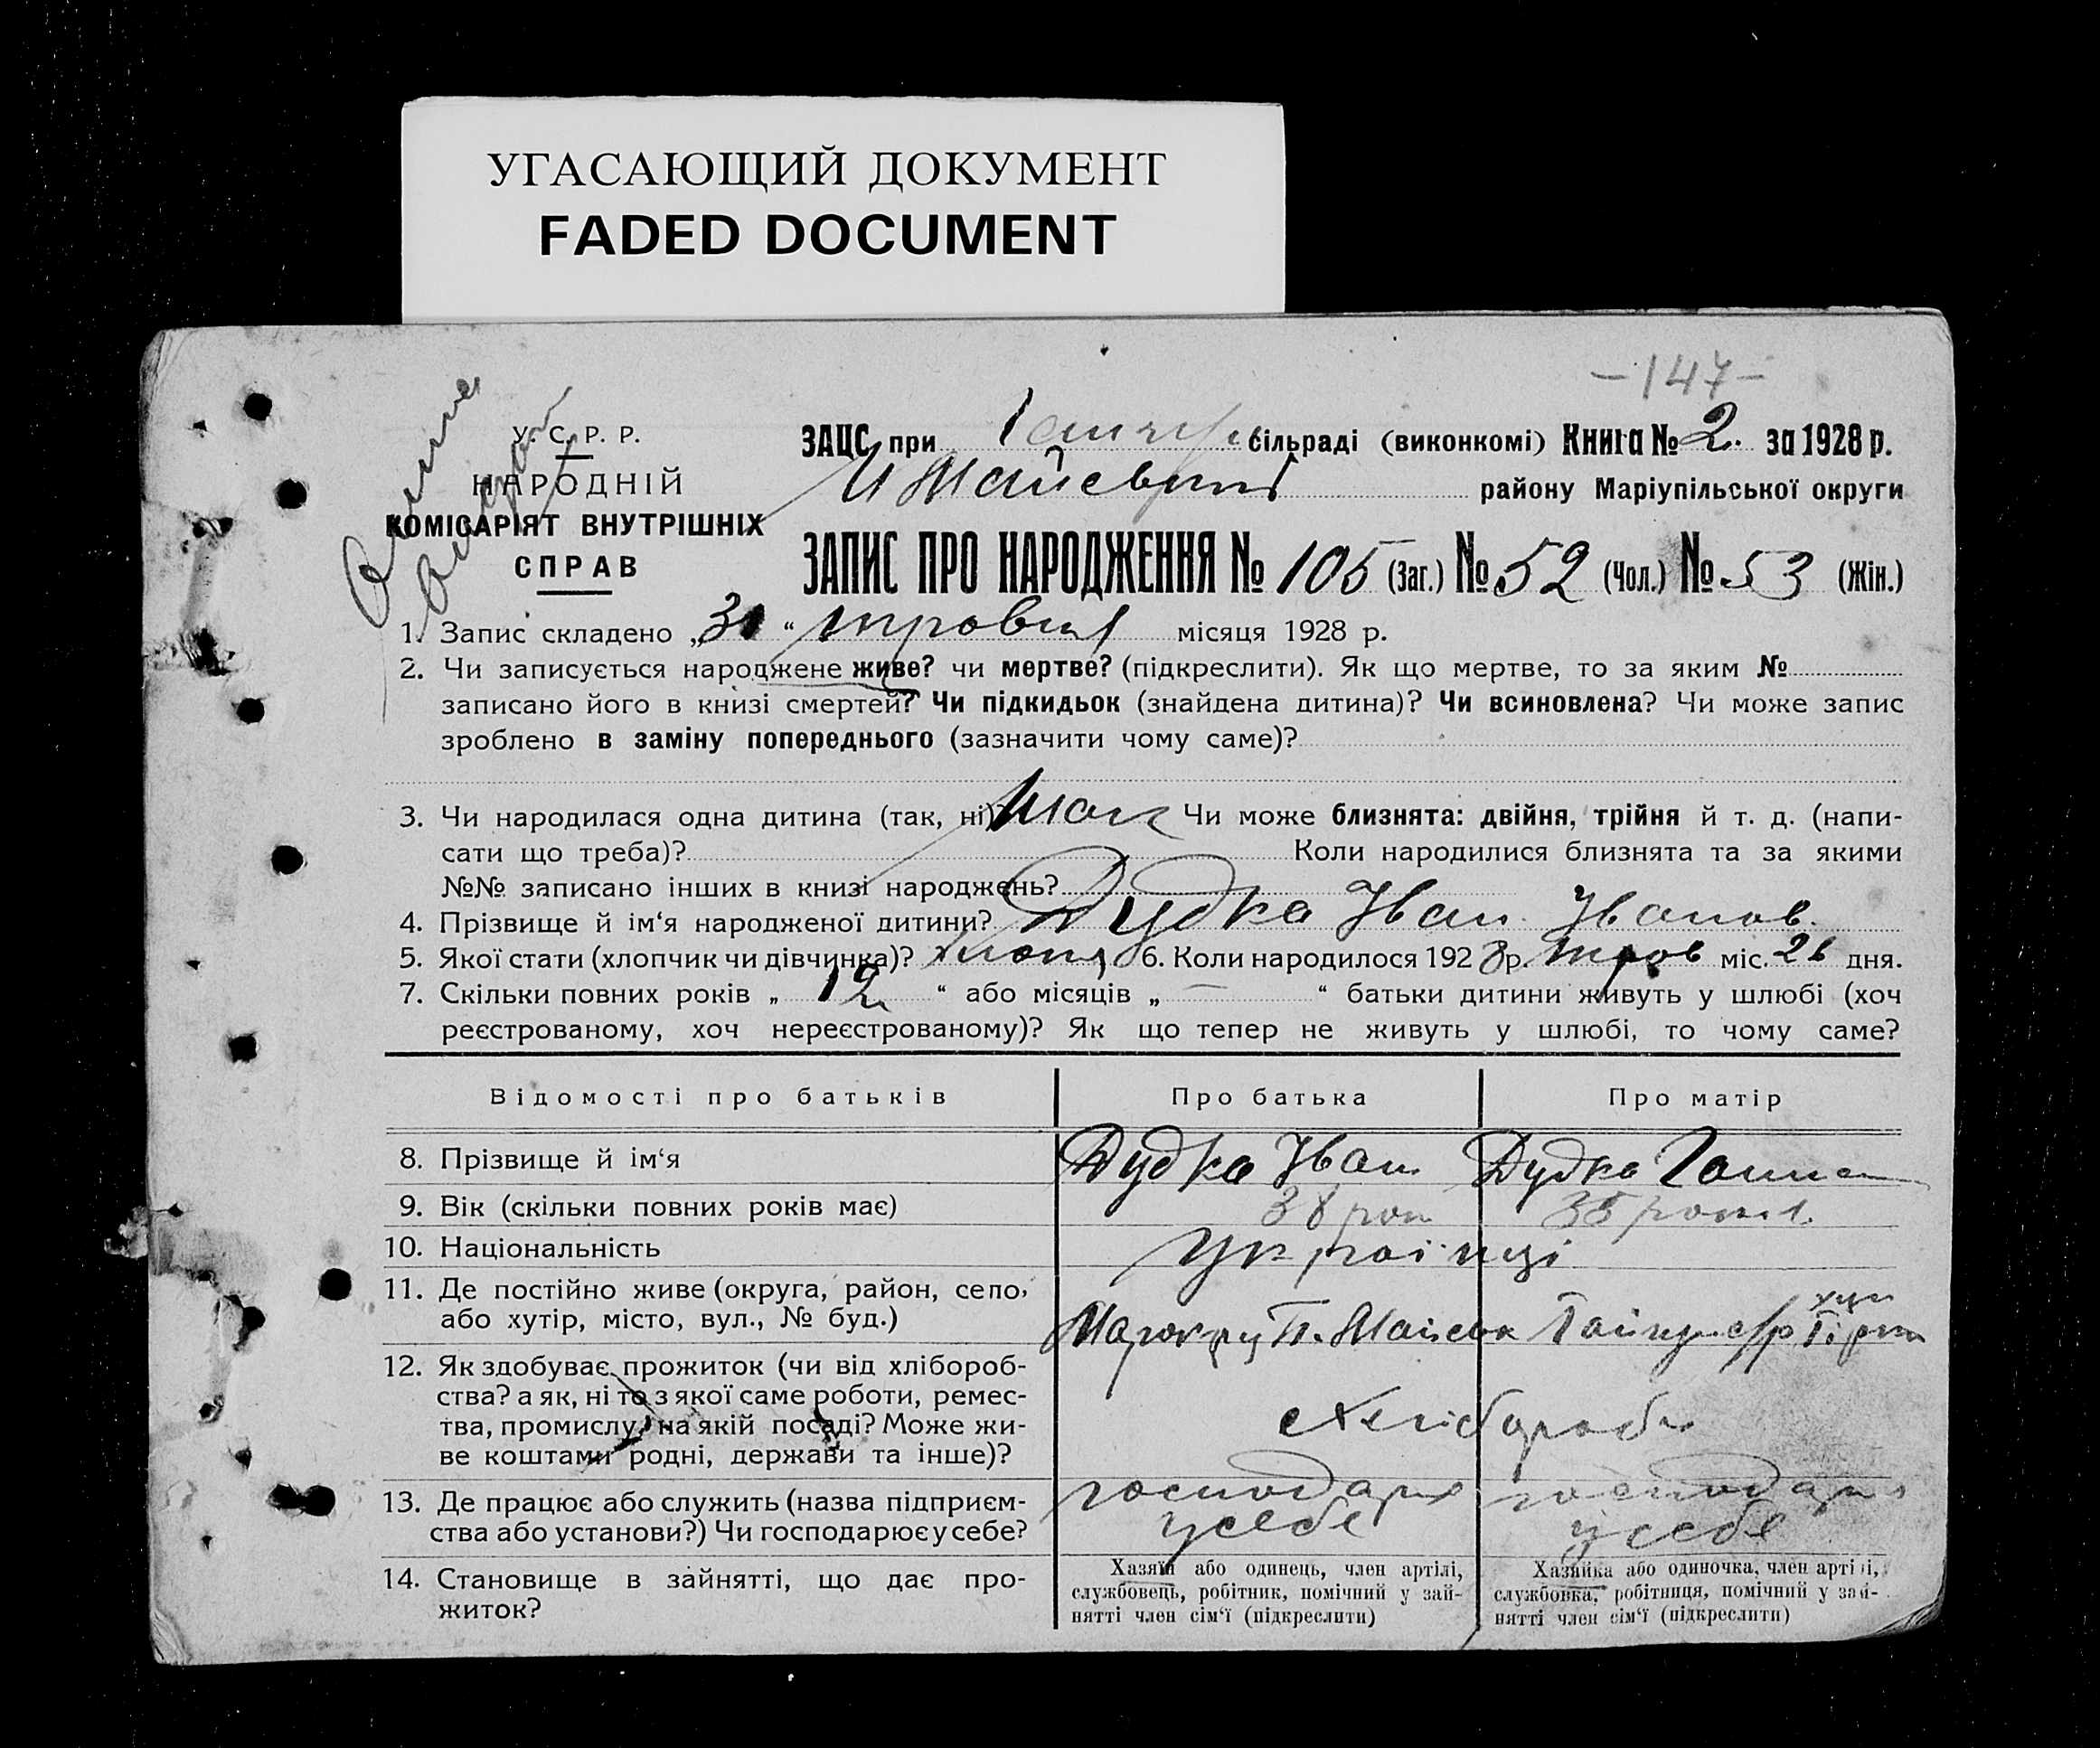 УГАСАЮЩИЙ ДОКУМЕНТ
FADED DOCUMENT
-147-
У. С. Р. Р.
НАРОДНІЙ
КОМІСАРІЯТ ВНУТРІШНІХ
СПРАВ
ЗАЦС при сільраді (виконкомі) Книга № 2. за 1928 р.
району Маріупільської округи
ЗАПИС ПРО НАРОДЖЕННЯ № 105 (Заг.) № 52 (Чол.) № 53 (Жін.)
1. Запис складено „ “ травня місяця 1928 р.
2. Чи записується народжене живе? чи мертве? (підкреслити). Як що мертве, то за яким №
записано його в книзі смертей? Чи підкидьок (знайдена дитина)? Чи всиновлена? Чи може запис
зроблено в заміну попереднього (зазначити чому саме)?
3. Чи народилася одна дитина (так, ні)? так Чи може близнята: двійня, трійня й т. д. (напи-
сати що треба)? Коли народилися близнята та за якими
№№ записано інших в книзі народжень?
4. Прізвище й ім‘я народженої дитини? Дудка Іван Іванов.
5. Якої статі (хлопчик чи дівчинка)? хлопч 6. Коли народилося 1928 р. трав міс. 26 дня.
7. Скільки повних років „ 12 “ або місяців „ — “ батьки дитини живуть у шлюбі (хоч
реєстрованому, хоч нереєстрованому)? Як що тепер не живуть у шлюбі, то чому саме?
Відомості про батьків Про батька Про матір
8. Прізвище й ім‘я Дудка Іван Дудка Ганна
9. Вік (скільки повних років має) 38 рок 35 рокі.
10. Національність Українці
11. Де постійно живе (округа, район, село,
або хутір, місто, вул., № буд.) с/р
12. Як здобуває прожиток (чи від хлібороб-
ства? а як, ні то з якої саме роботи, ремес-
тва, промислу, на якій посаді? Може жи-
ве коштами родні, держави та інше)?
Хлібороби
13. Де працює або служить (назва підприєм-
ства або установи?) Чи господарює у себе?
господарює господарює
у себе у себе
14. Становище в зайнятті, що дає про-
житок?
Хазяїн або одинець, член артілі,
службовець, робітник, помічний у зай-
нятті член сім‘ї (підкреслити)
Хазяйка або одиночка, член артілі,
службовка, робітниця, помічний у зай-
нятті член сім‘ї (підкреслити)